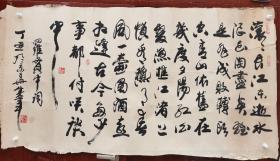 滚滚長江東逝水
浪花淘盡英雄
是非成敗轉頭
空青山依舊在
幾度夕陽紅白
髮漁樵江渚上
慣看秋月春
風一壺濁酒喜
相逢古今多少
事都付笑談
中
羅貫中詞
丁亥